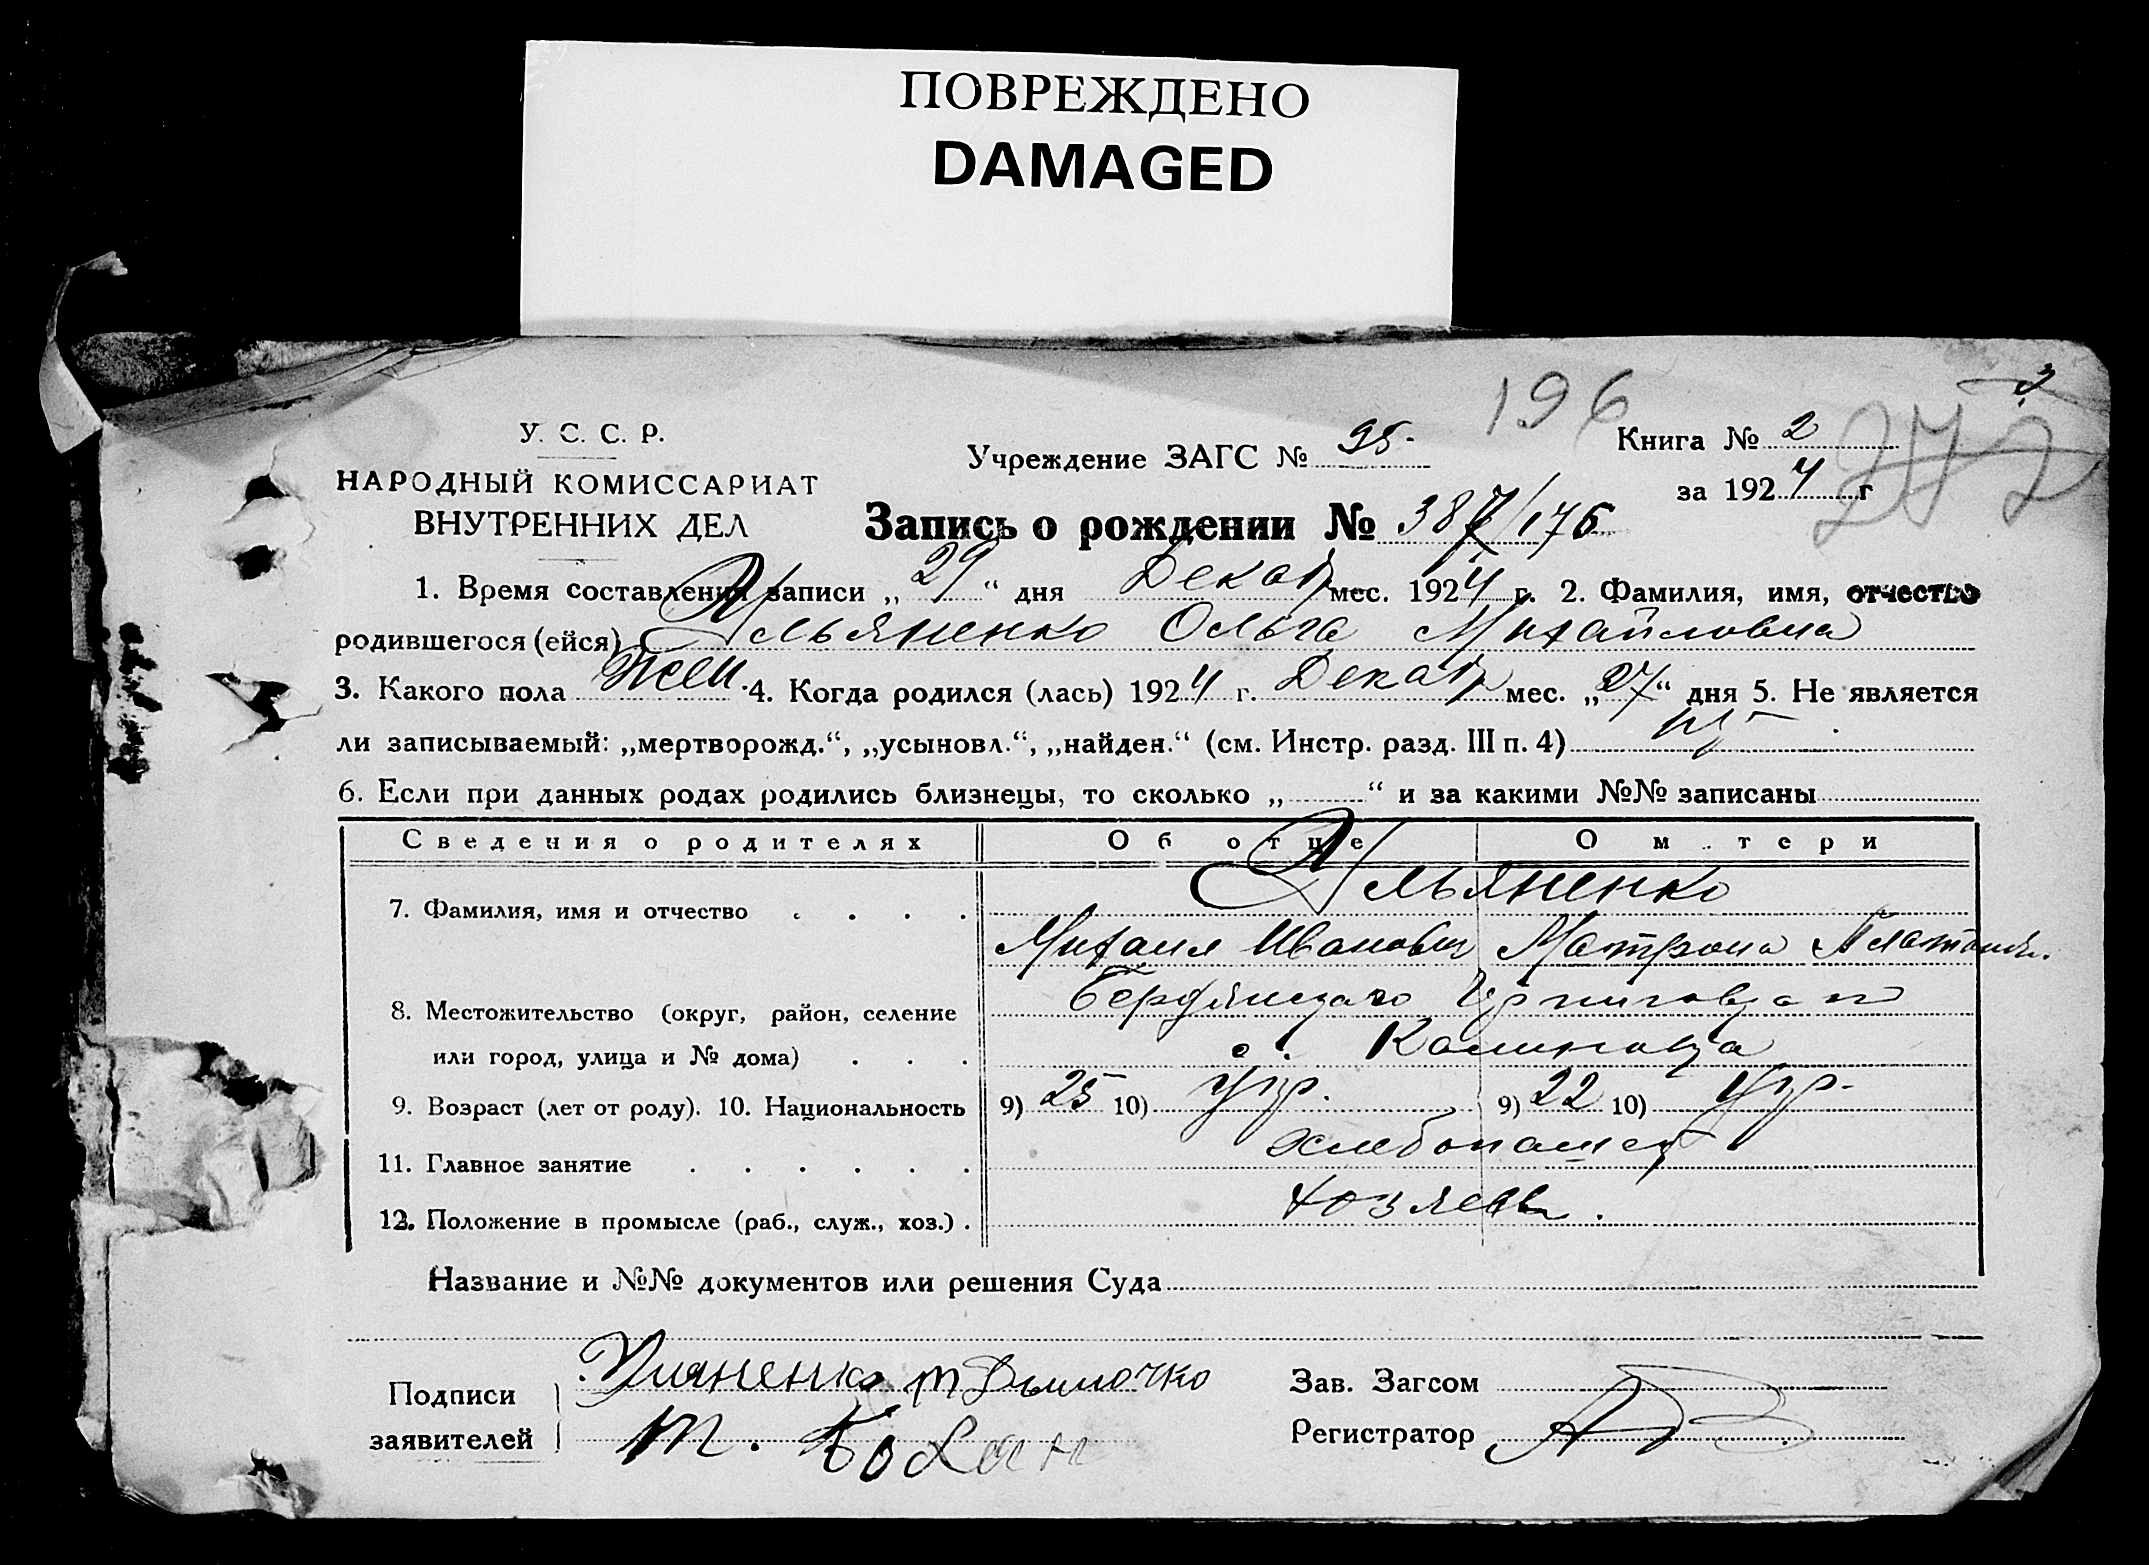 ПОВРЕЖДЕНО
DAMAGED
196
У. С. С. Р.
НАРОДНЫЙ КОМИССАРИАТ
ВНУТРЕННИХ ДЕЛ
Учреждение ЗАГС № 95.
Книга № 2
за 1924 г
272
Запись о рождении № 387/176
1. Время составления записи „29“ дня Декаб мес. 1924 г. 2. Фамилия, имя, отчество
родившегося (ейся) Ульяненко Ольга Михайловна
3. Какого пола жен. 4. Когда родился (лась) 1924 г. Декаб мес. „27“ дня 5. Не является
ли записываемый: „мертворожд.“, „усыновл.“, „найден.“ (см. Инстр. разд. III п. 4) нет
6. Если при данных родах родились близнецы, то сколько „ “ и за какими №№ записаны
Сведения о родителях Об отце О м тери
7. Фамилия, имя и отчество Ульяненко
Михаил Иванович Матрона
8. Местожительство (округ, район, селение Бердянского Черниговского
или город, улица и № дома) с. Калиновка
9. Возраст (лет от роду). 10. Национальность 9) 25 10) Укр. 9) 22 10) Укр.
11. Главное занятие хлебопашец
12. Положение в промысле (раб., служ., хоз.) хозяева.
Название и №№ документов или решения Суда
Подписи Уляненко т Дымочко Зав. Загсом
заявителей т. Регистратор